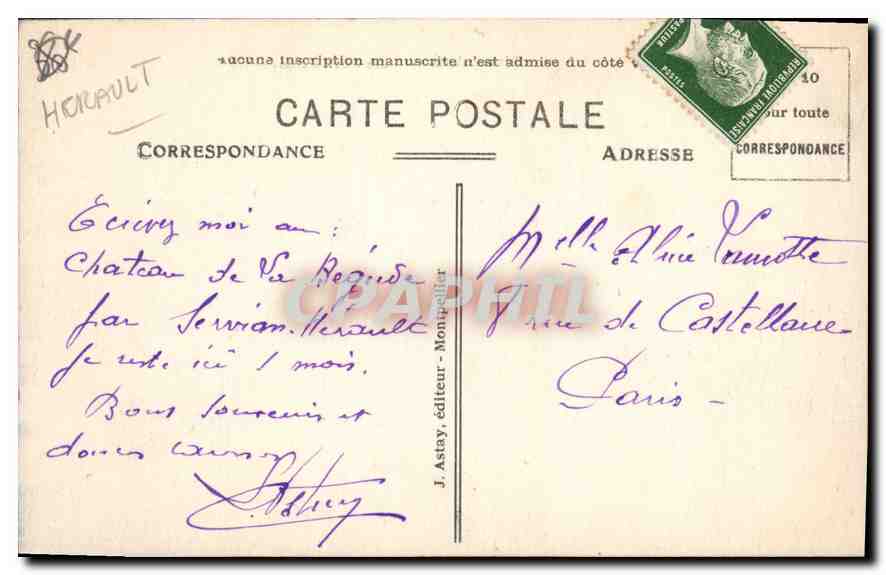 HERAULT
Aucune inscription manuscrite n'est admise du côté
CARTE POSTALE
CORRESPONDANCE
ADRESSE
PASTEUR
POSTES
REPUBLIQUE FRANÇAISE
10
pour toute
CORRESPONDANCE
Ecrivez moi au :
Chateau de La Bégude
par Servian. Herault
Je reste ici 1 mois.
Bons souvenirs et
J. Astay, éditeur - Montpellier
Melle Alice
7 rue de Castellane
Paris -
CPAPHIL